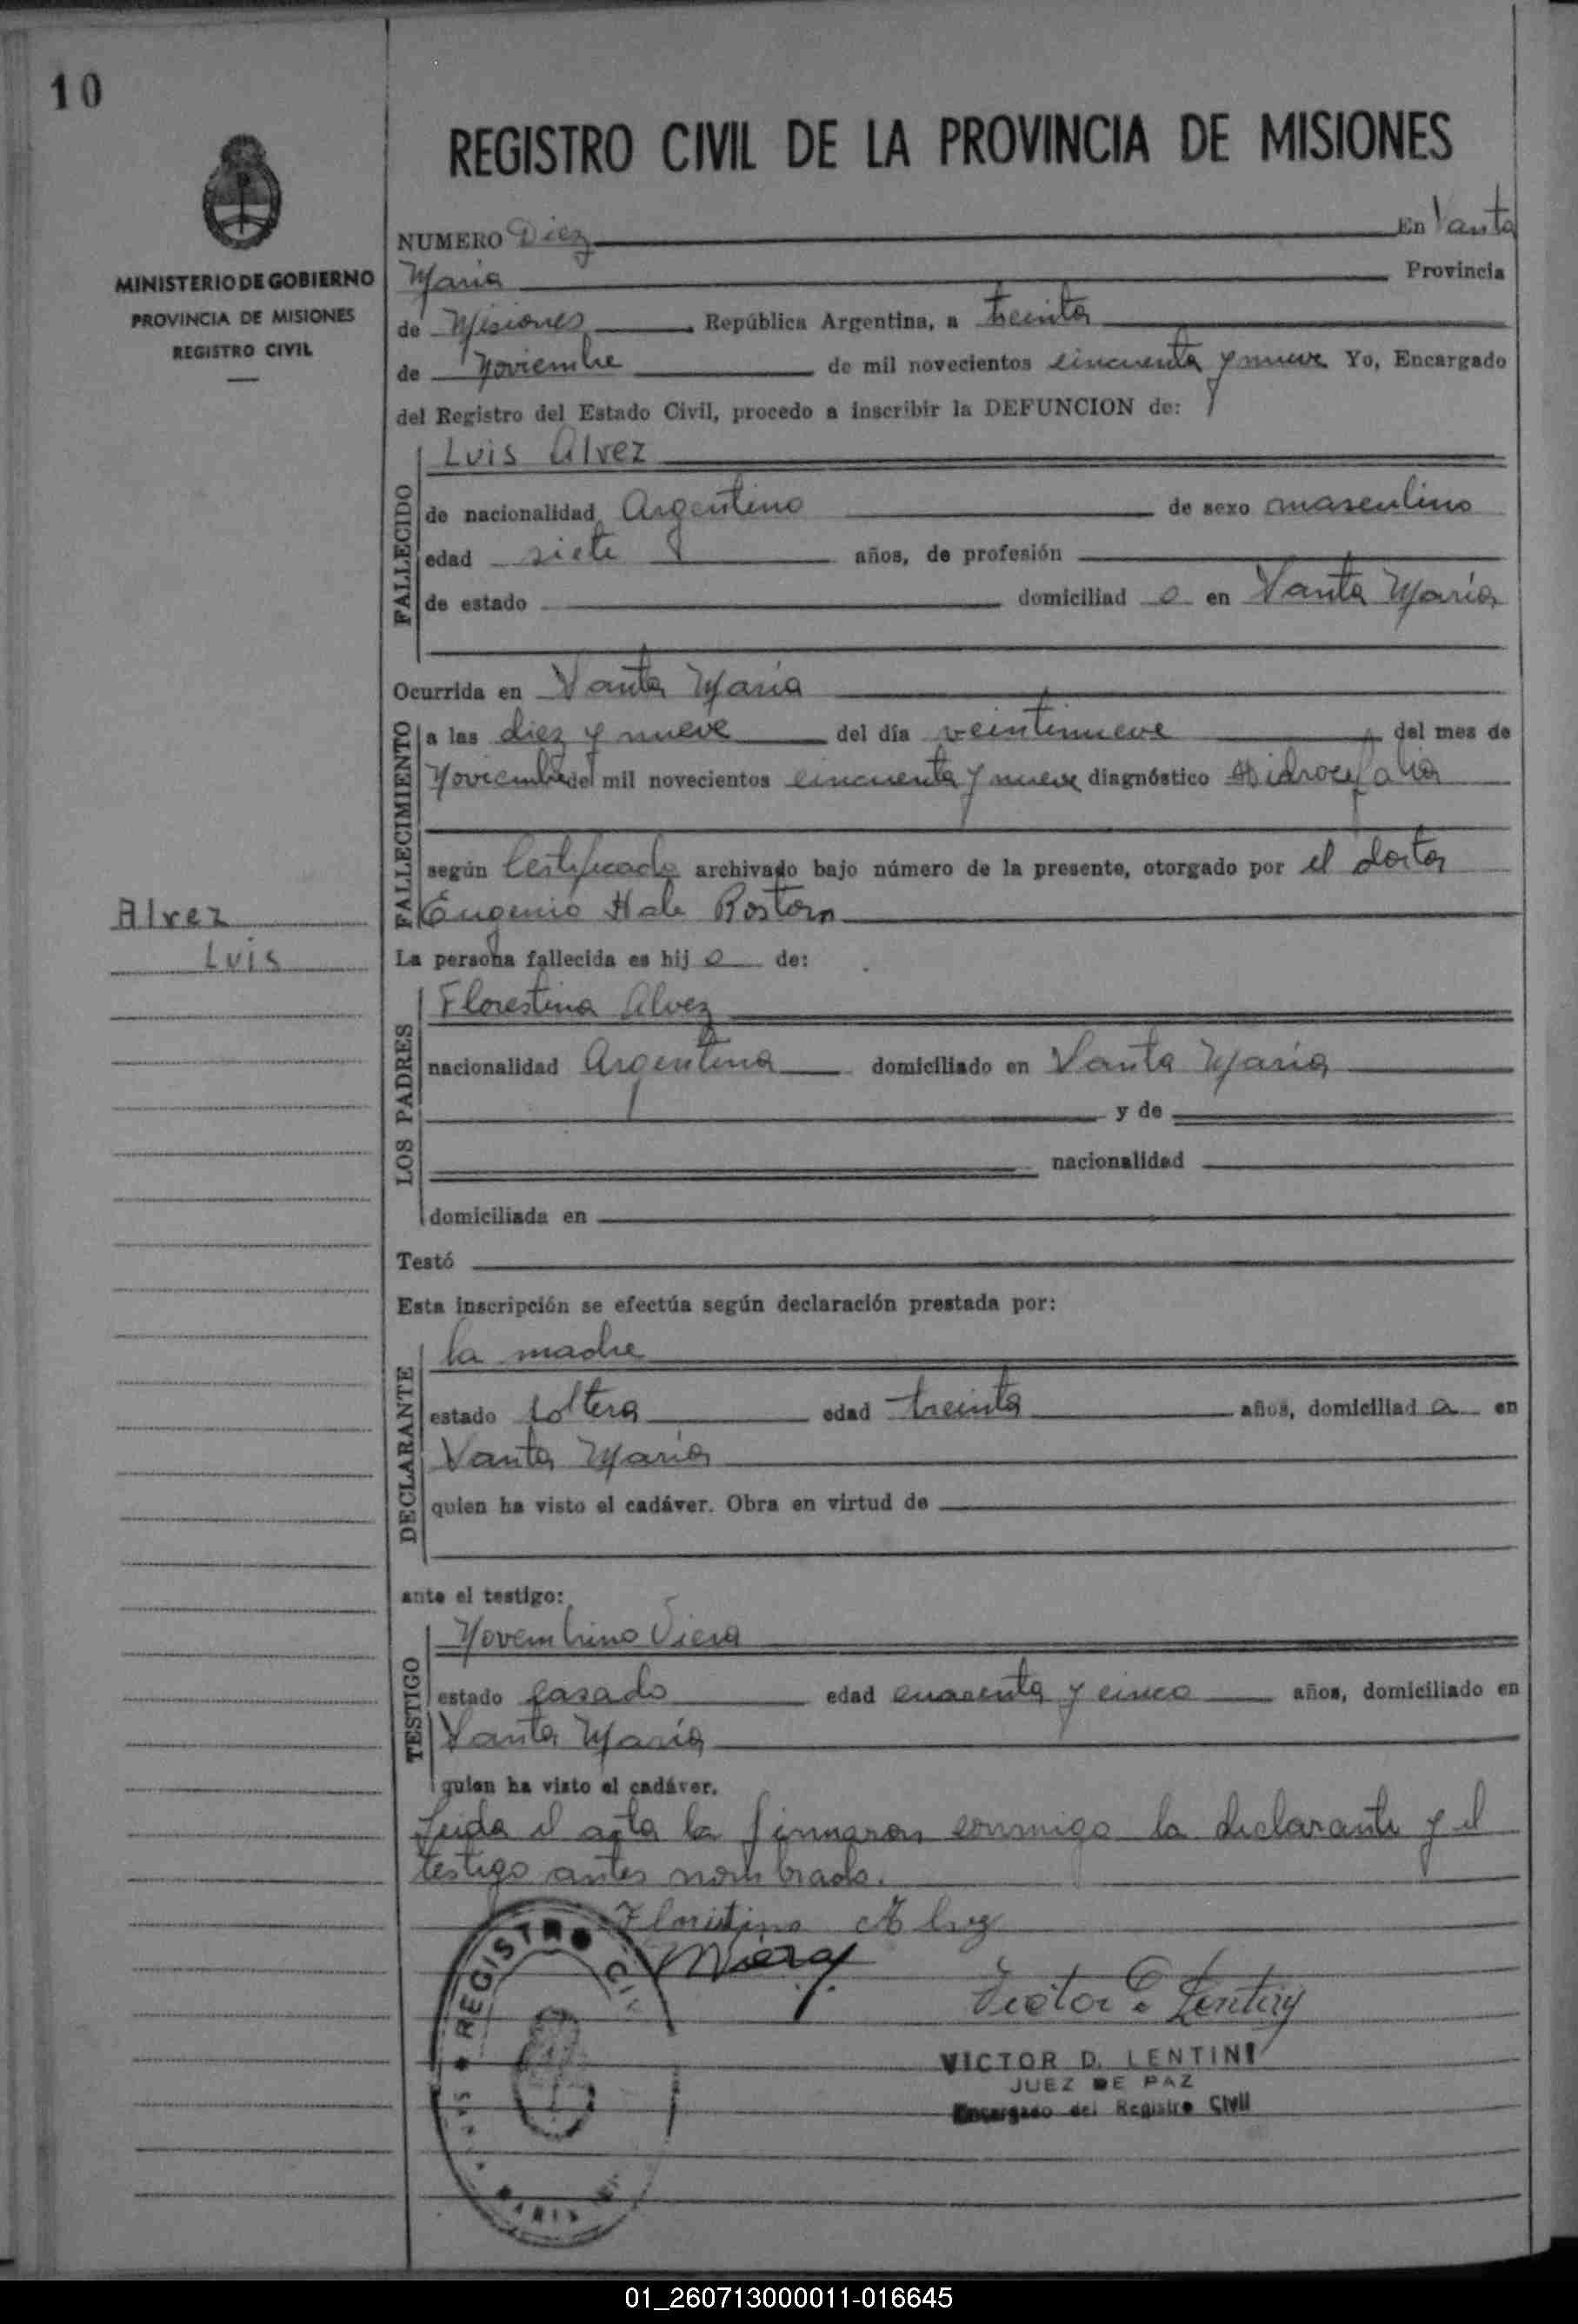 10
REGISTRO CIVIL DE LA PROVINCIA DE MISIONES
MINISTERIO DE GOBIERNO
PROVINCIA DE MISIONES
REGISTRO CIVIL
NUMERO Diez En Santa
Maria Provincia
de Misiones República Argentina, a treinta
de Noviembre de mil novecientos cincuenta y nueve Yo, Encargado
del Registro del Estado Civil, procedo a inscribir la DEFUNCION de:
FALLECIDO
Luis Alvez
de nacionalidad Argentino de sexo masculino
edad siete años, de profesión
de estado domiciliad o en Santa María
Ocurrida en Santa María
FALLECIMIENTO
a las diez y nueve del día veintinueve del mes de
Noviembre del mil novecientos cincuenta y nueve diagnóstico Hidrocefalia
según Certificado archivado bajo número de la presente, otorgado por el doctor
Eugenio Hale
Alvez
Luis
La persona fallecida es hij o de:
LOS PADRES
Florestina Alvez
nacionalidad Argentina domiciliado en Santa María
y de
nacionalidad
domiciliada en
Testó
Esta inscripción se efectúa según declaración prestada por:
DECLARANTE
la madre
estado soltera edad treinta años, domiciliad a en
Santa María
quien ha visto el cadáver. Obra en virtud de
ante el testigo:
TESTIGO
Novembrino Viera
estado casado edad cuarenta y cinco años, domiciliado en
Santa María
quien ha visto el cadáver.
Leida el acta la firmaron conmigo la declarante y el
testigo antes nombrado.
Floristina Alvez
NViera
REGISTRO CIVIL
VICTOR D. LENTINI
JUEZ DE PAZ
Encargado del Registro Civil
01_260713000011-016645